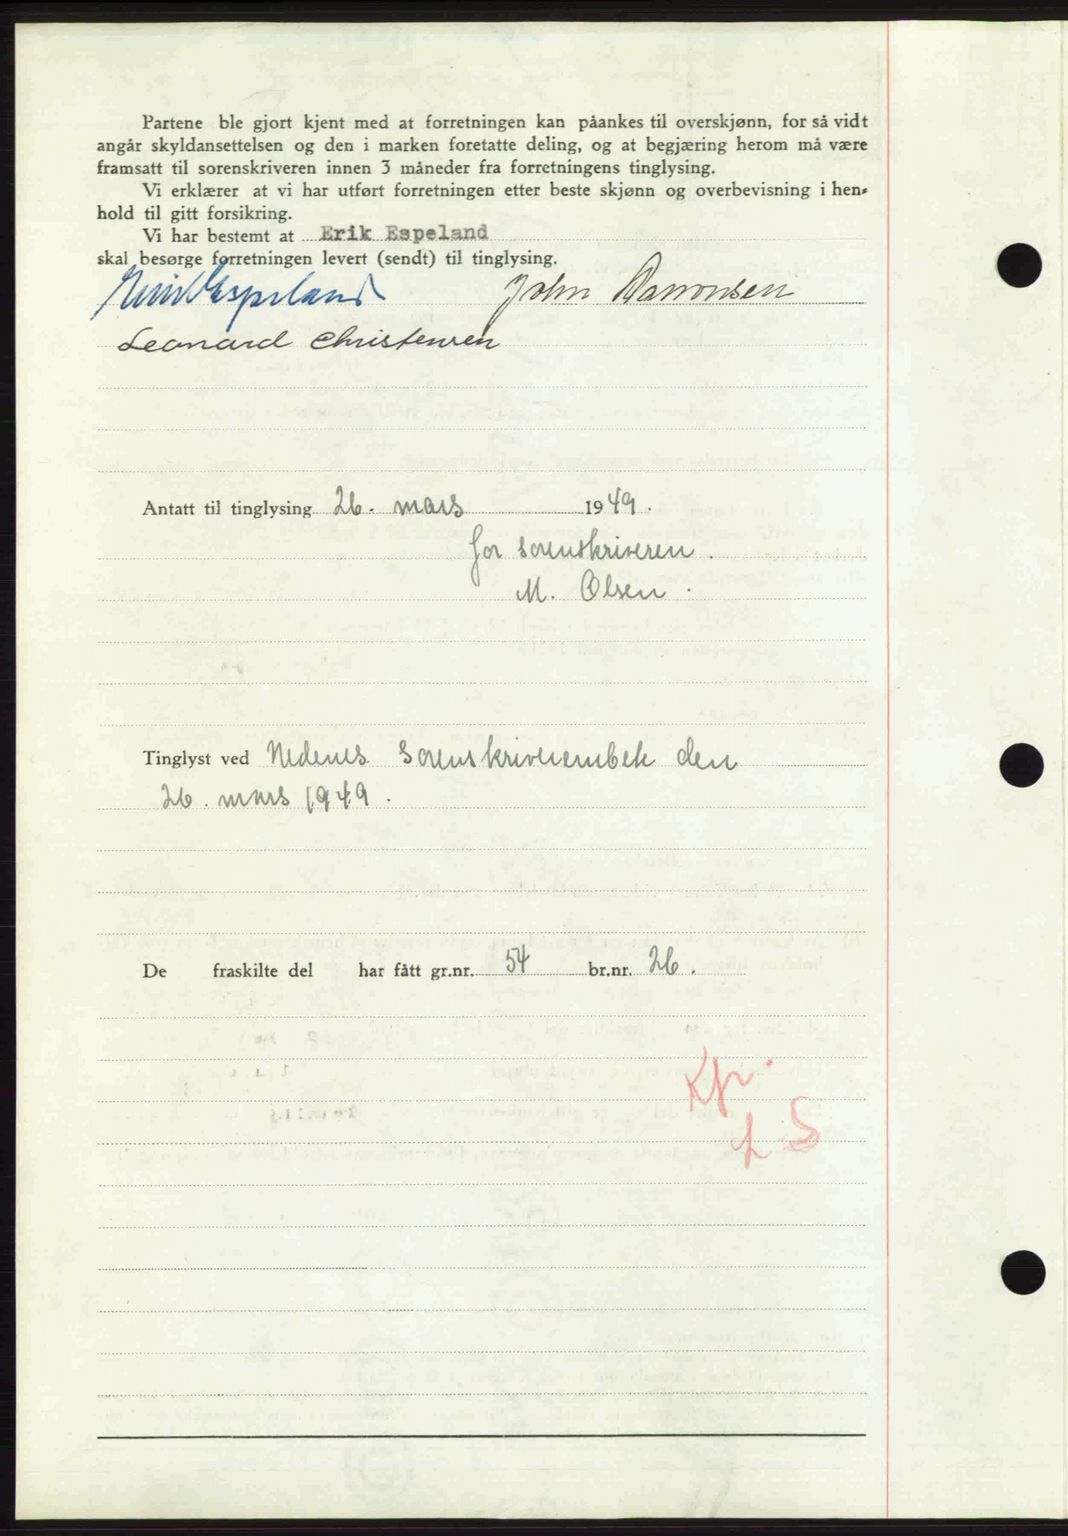 Partene ble gjort kjent med at forretningen kan påankes til overskjønn, for så vidt
angår skyldansettelsen og den i marken foretatte deling, og at begjæring herom må være
framsatt til sorenskriveren innen 3 måneder fra forretningens tinglysing.
Vi erklærer at vi har utført forretningen etter beste skjønn og overbevisning i hen-
hold til gitt forsikring.
Vi har bestemt at Erik Espeland
skal besørge forretningen levert (sendt) til tinglysing.
Espeland John
Leonard Christensen
Antatt til tinglysing 26. mars 1949.
for sorenskriveren.
M. Olsen.
Tinglyst ved Nedenes sorenskriverembete den
26. mars 1949.
De fraskilte del har fått gr.nr. 54 br.nr. 26.